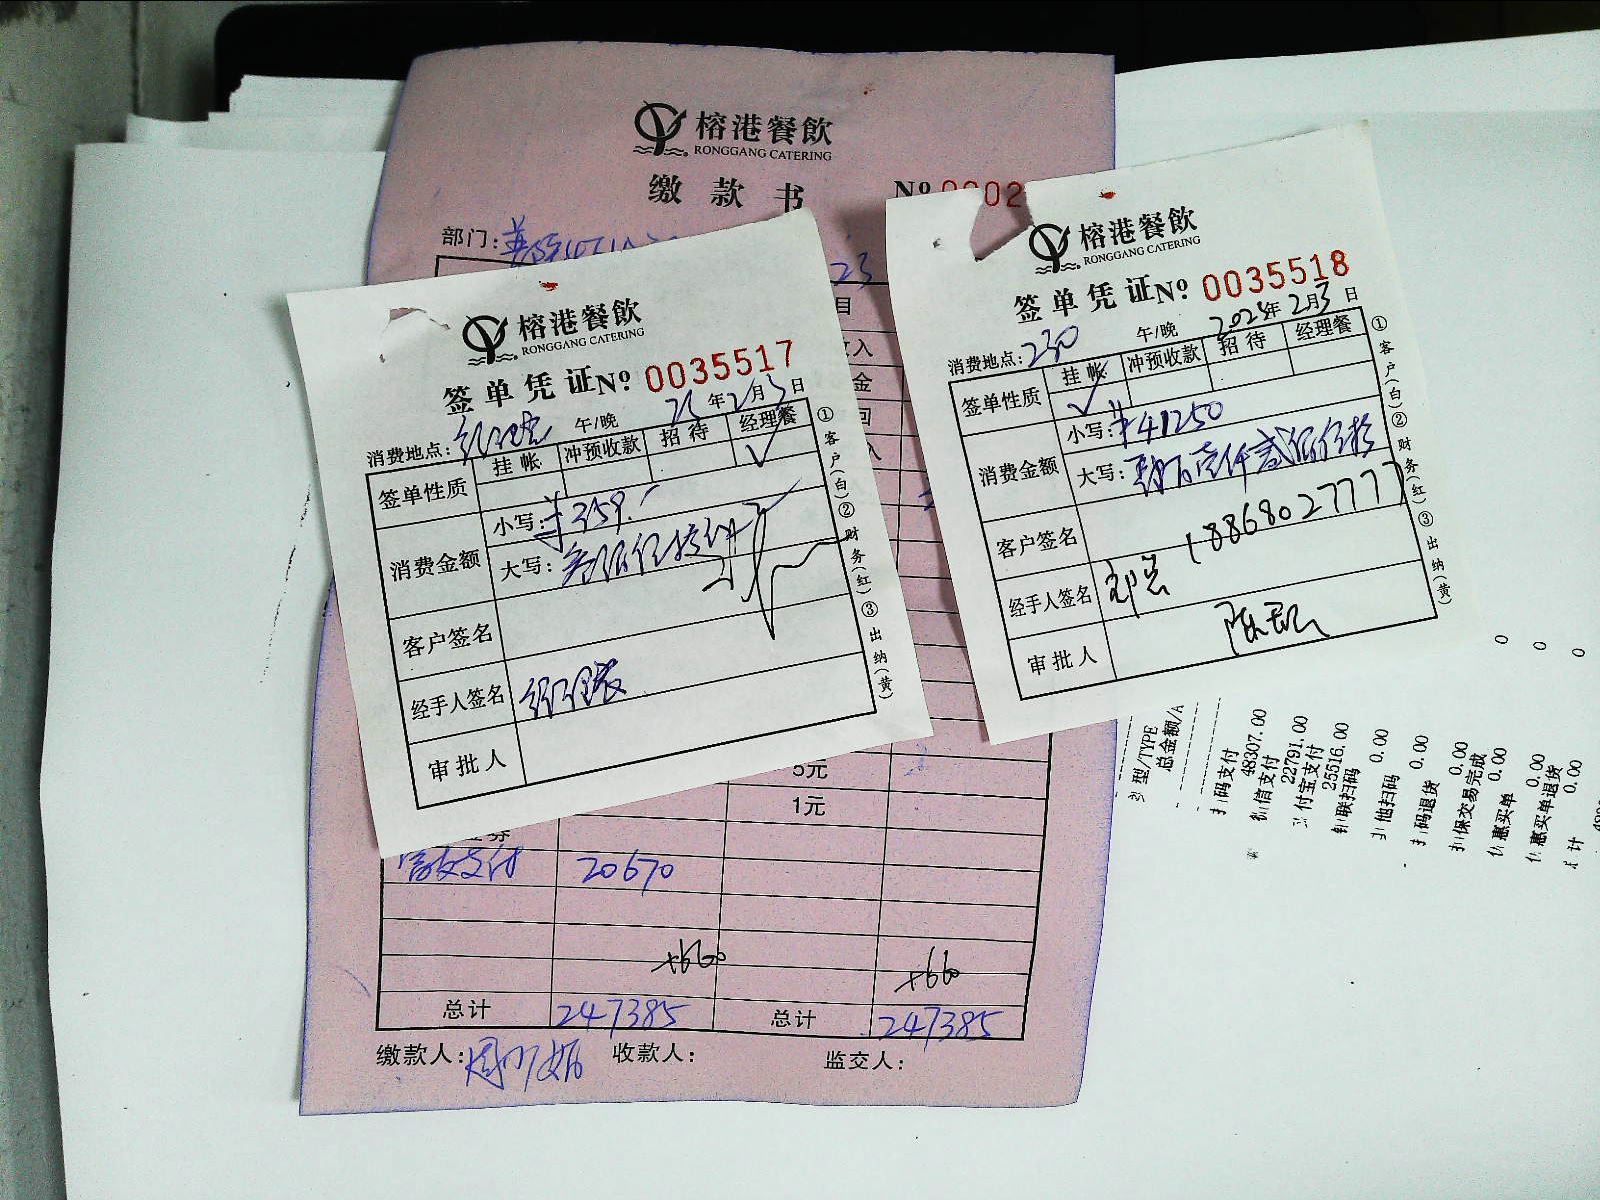 榕港餐飲
RONGGANG CATERING
缴款书
Nº
部门:
23
目
入
金
回
入
5元
1元
支付 20670
+660 +660
总计 247385 总计 247385
缴款人: 收款人: 监交人:
榕港餐飲
RONGGANG CATERING
签单凭证Nº 0035517
消费地点: 午/晚 25年2月3日
签单性质 挂帐 冲预收款 招待 经理餐
✓
消费金额 小写: ¥359.-
大写: 叁佰伍拾玖
客户签名
经手人签名
审批人
①客户(白)②财务(红)③出纳(黄)
榕港餐飲
RONGGANG CATERING
签单凭证Nº 0035518
消费地点: 230 午/晚 2025年2月3日
签单性质 挂帐 冲预收款 招待 经理餐
✓
消费金额 小写: ¥41250
大写: 肆万壹仟贰佰伍拾
客户签名 18868027777
经手人签名
审批人
①客户(白)②财务(红)③出纳(黄)
型/TYPE
总金额/A
码支付
48307.00
信支付
22791.00
付宝支付
25516.00
联扫码
0.00
他扫码
0.00
码退货
0.00
保交易完成
0.00
惠买单
0.00
惠买单退货
0.00
计
0
0
0